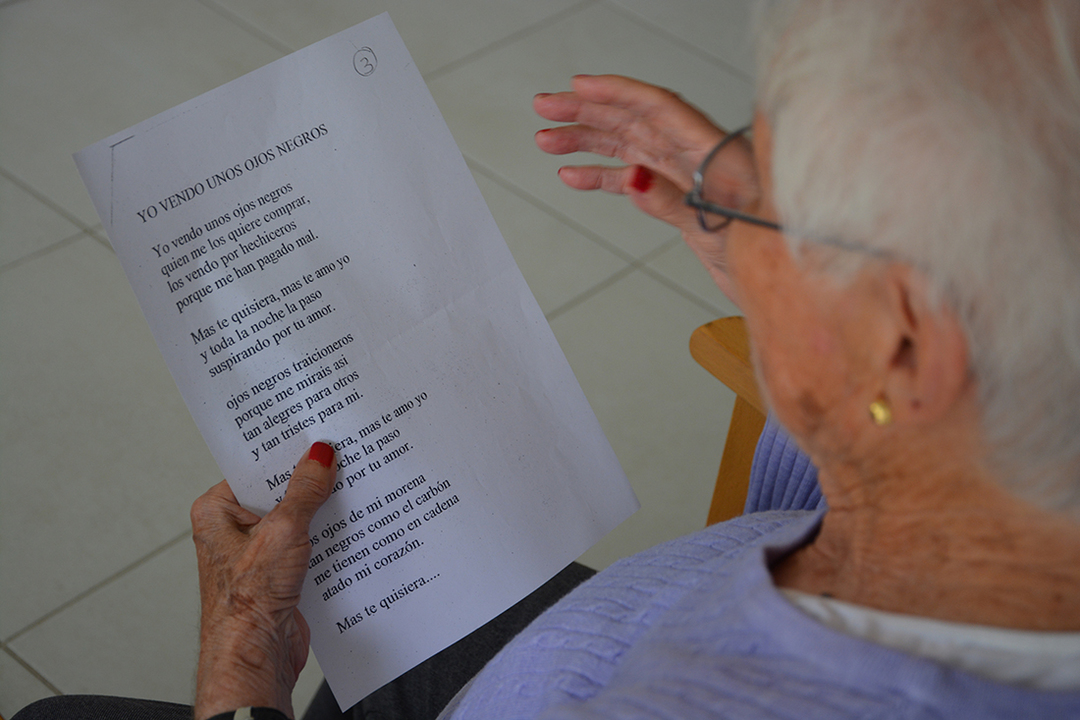 3
YO VENDO UNOS OJOS NEGROS
Yo vendo unos ojos negros
quien me los quiere comprar,
los vendo por hechiceros
porque me han pagado mal.
Mas te quisiera, mas te amo yo
y toda la noche la paso
suspirando por tu amor.
ojos negros traicioneros
porque me mirais asi
tan alegres para otros
y tan tristes para mi.
Mas iera, mas te amo yo
y oche la paso
do por tu amor.
os ojos de mi morena
an negros como el carbón
me tienen como en cadena
atado mi corazón.
Mas te quisiera....